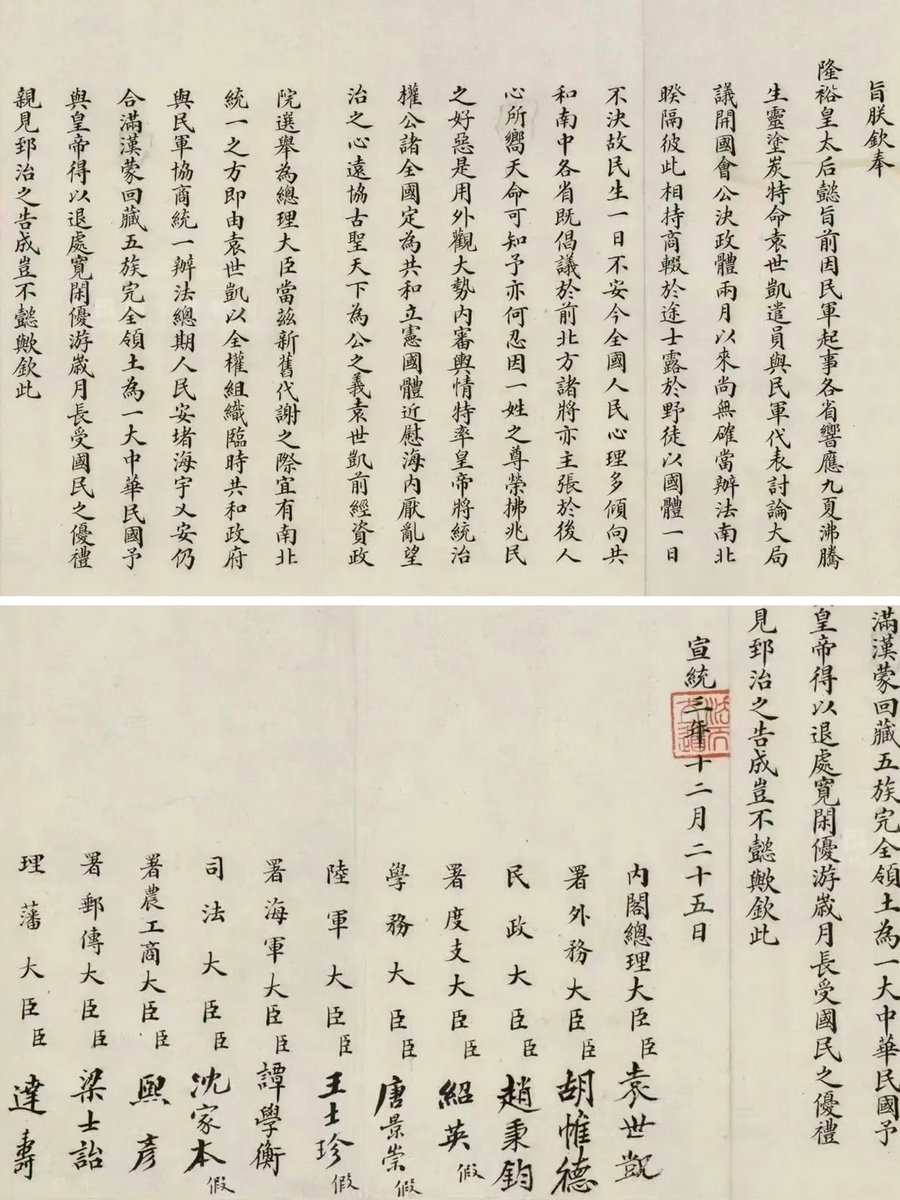 旨朕欽奉
隆裕皇太后懿旨前因民軍起事各省響應九夏沸騰
生靈塗炭特命袁世凱遣員與民軍代表討論大局
議開國會公決政體兩月以來尚無確當辦法南北
暌隔彼此相持商輟於途士露於野徒以國體一日
不決故民生一日不安今全國人民心理多傾向共
和南中各省既倡議於前北方諸將亦主張於後人
心所嚮天命可知予亦何忍因一姓之尊榮拂兆民
之好惡是用外觀大勢內審輿情特率皇帝將統治
權公諸全國定為共和立憲國體近慰海內厭亂望
治之心遠協古聖天下為公之義袁世凱前經資政
院選舉為總理大臣當茲新舊代謝之際宜有南北
統一之方即由袁世凱以全權組織臨時共和政府
與民軍協商統一辦法總期人民安堵海宇乂安仍
合滿漢蒙回藏五族完全領土為一大中華民國予
與皇帝得以退處寬閑優游歲月長受國民之優禮
親見郅治之告成豈不懿歟欽此
滿漢蒙回藏五族完全領土為一大中華民國予
皇帝得以退處寬閑優游歲月長受國民之優禮
見郅治之告成豈不懿歟欽此
宣統三年十二月二十五日
法天立道
內閣總理大臣臣袁世凱
署外務大臣臣胡惟德
民政大臣臣趙秉鈞
署度支大臣臣紹英假
學務大臣臣唐景崇假
陸軍大臣臣王士珍假
署海軍大臣臣譚學衡
司法大臣臣沈家本假
署農工商大臣臣熙彥
署郵傳大臣臣梁士詒
理藩大臣臣達壽